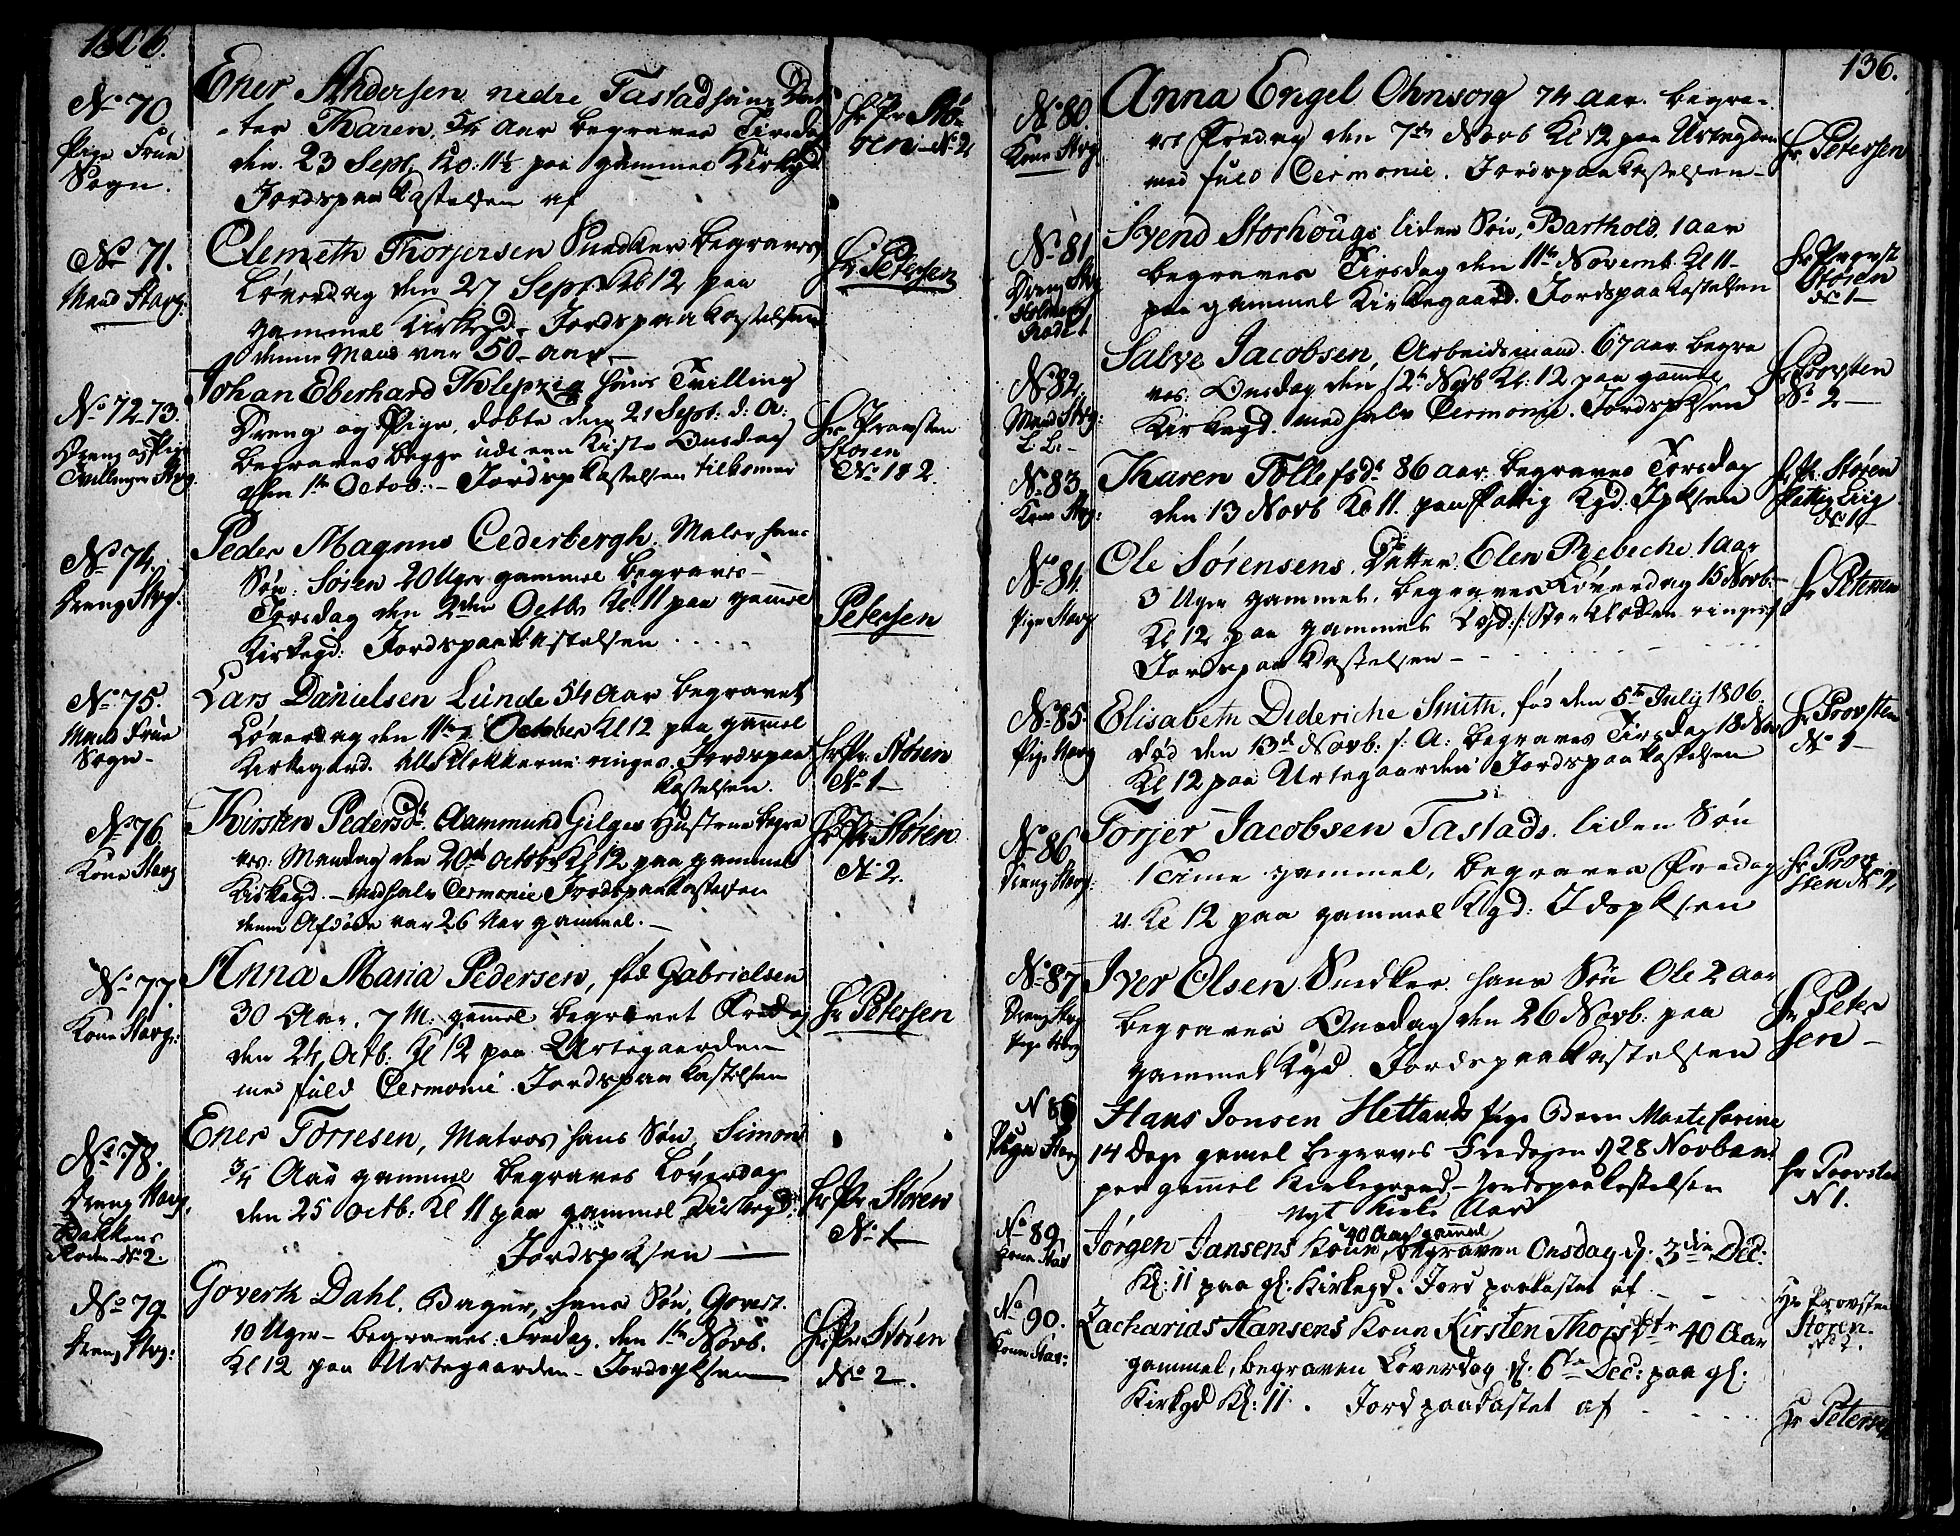 1806.
No 70
Pige Frue
Sogn.
Ener Andersen nedre Tastad hans Dat
-ter Karen 5/4 Aar begraves Tirsdag
den 23 Sept. Kl: 11½ paa gammel Kirkegd
Jordspaakastelsen af
Hr Pr Stø-
ren No 2
No 71.
Mand Stavg:
Clemeth Thorjersen Snedker begraves
Løverdag den 27 Sept. Kl 12 paa
gammel Kirkegd. Jordspaakastelsen
denne Mand var 50 - aar -
Hr Petersen
No 72-73.
Dreng og Pige
Tvillinger Stvg.
Johan Eberhard Tholepzig hans Tvilling
Dreng og Pige, døbte den 21 Sept: d: A:
begraves begge udi een Kiste Onsdag
den 1te Octob: - Jordspkastelsen tilkomer
Hr Provsten
Støren
No 1 & 2
No 74.
Dreng Stvg:
Peder Magnus Cederbergh. Maler hans
Søn: Søren 20 Uger gammel begraves -
Torsdag den 2den Octb: Kl: 11 paa gammel
Kirkegd: Jordspaakastelsen
Petersen
No 75.
Mand Frue
Sogn -
Lars Danielsen Lunde 54 Aar begravet
Løverdag den 11te October Kl 12 paa gammel
Kirkegaard. Alle Klokkerne ringes. Jordspaa
kastelsen.
Hr Pr. Støren
No 1 -
No 76.
Kone Stavg
Kirsten Pedersdr. Aammund Gilges Hustrue begra
ves: Mandag den 20de Octobr Kl 12 paa gammel
Kirkegd. - med halv Cermonie Jordspaakastelsen
denne Afdøde var 26 Aar gammel. -
Hr Pr Støren
No 2.
No 77
Kone Stavg:
Anna Maria Pedersen, fød Gabrielsen
30 Aar, 7 M: gammel begravet Fredag
den 24 Octb. Kl 12 paa Urtegaarden
med fuld Cermonie. Jordspaakastelsen
Hr Petersen
No 78.
Dreng Stavg.
Bakkens
Rode No 2.
Ener Torresen, Matros hans Søn, Simon
¾ Aar gammel begraves Løverdag
den 25 Octb: Kl 11 paa gammel Kirkegd:
Jordspksen
Hr Pr Støren
No 1
No 79.
Dreng Stvg:
Goverth Dahl, Bager, hans Søn, Govert.
10 Uger - begraves Fredag. den 1te Novb.
Kl 12 paa Urtegaarden - Jordspksen
Hr Pr Støren
No 2.
136.
No 80
Kone Stvg
Anna Engel Ohnsorg 74 aar. begra-
ves Fredag den 7de Novb Kl 12 paa Urtegden
med fuld Cermonie. Jordspaakastelsen -
Hr. Petersen
No 81
Dreng Stvg
Holmens
Rode 1
Svend Storhougs liden Søn, Barthold. 1 aar
begraves Tirsdag den 11te Novemb. Kl 11 -
paa gammel Kirkegaard. Jordspaakastelsen
Hr Provst
Støren
No 1 -
No 82
Mand Stvg:
Salve Jacobsen, Arbeidsmand. 67 aar begra
ves: Onsdag den 12te Novb Kl: 12 paa gamle
Kirkegd. med halv Cermonie. Jordspksen
Hr Provsten
No 2 -
No 83
Kone Stvg:
Karen Tollefsdr 86 aar. begraves Torsdag
den 13 Novb Kl 11. paa Fattig Kgd. Jpksen
Hr. Pr. Støren
Fattig Liig
No 1
No 84.
Pige Stavg
Ole Sørensens. Datter. Elen Rebeche. 1 Aar
3 Uger gammel, begraves Løverdag 15 Novb. -
Kl 12 paa gammel Kgd: /: Store Klokken ringes :/
Jordspaakastelsen -
Hr Petersen
No 85.
Pige Stavg
Elisabeth Dideriche Smith. fød den 5te July 1806
død den 13d Novb: s: A: begraves Tirsdag 18 Nov
Kl 12 paa Urtegaarden Jordspaakastelsen
Hr Provsten
No 1 -
No 86
Dreng Stavg:
Torjer Jacobsen Tastads. liden Søn
1 Time gammel, begraves Fredag
Kl 12 paa gammel Kgd: Jdspksen
Hr Prov
sten No 2.
No 87
Dreng Stvg
Pige Stvg
Iver Olsen Snedker hans Søn Ole 2 aar
begraves Onsdag den 26 Novb: paa
gammel Kgd. Jordspaakastelsen
Hr Peter
sen -
N 88
Pige Stavg
Hans Jonsen Hetlands Pige Barn Marte Corine
14 Dage gamel begraves Fredagen d 28 Novbem:
paa gamel Kirkegaard - Jordspaakastelsen
Nyt Kirke Aar
Hr Provsten
N 1.
No 89.
Kone Stav
Jørgen Jansens Kone, 40 Aar gammel begraven Onsdag d. 3die Dec:
Kl: 11 paa gl. Kirkegd. Jord paakastet af
Hr Provsten
Støren.
No 2.
No 90.
Kone Stav:
Zacharias Hansens Kone Kirsten Thorsdtr 40 Aar
gammel, begraven Løverdag d: 6te Dec: paa gl.
Kirkgd Kl: 11. Jord paakastet af
Hr Petersen